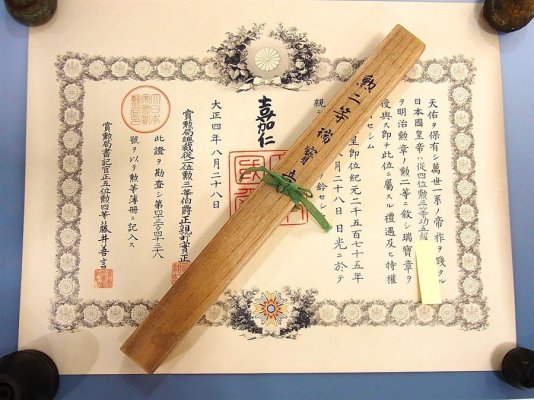 天佑ヲ保有シ萬世一系ノ帝祚ヲ踐タル
日本國皇帝ハ從四位勲三等功五級
ヲ明治勲章ノ勲二等ニ敘シ瑞寶章ヲ
授與ス即チ此位ニ屬スル禮遇及ヒ特權
セシム
皇即位紀元二千五百七十五年
八月二十八日日光ニ於テ
親
鈐セシム
嘉仁
大正四年八月二十八日
賞勲局總裁從二位勲三等伯爵正親町實正
此證ヲ勘査シ第
號ヲ以テ勲等簿冊ニ記入ス
賞勲局書記官正五位勲四等藤井善言
勲二等瑞寶